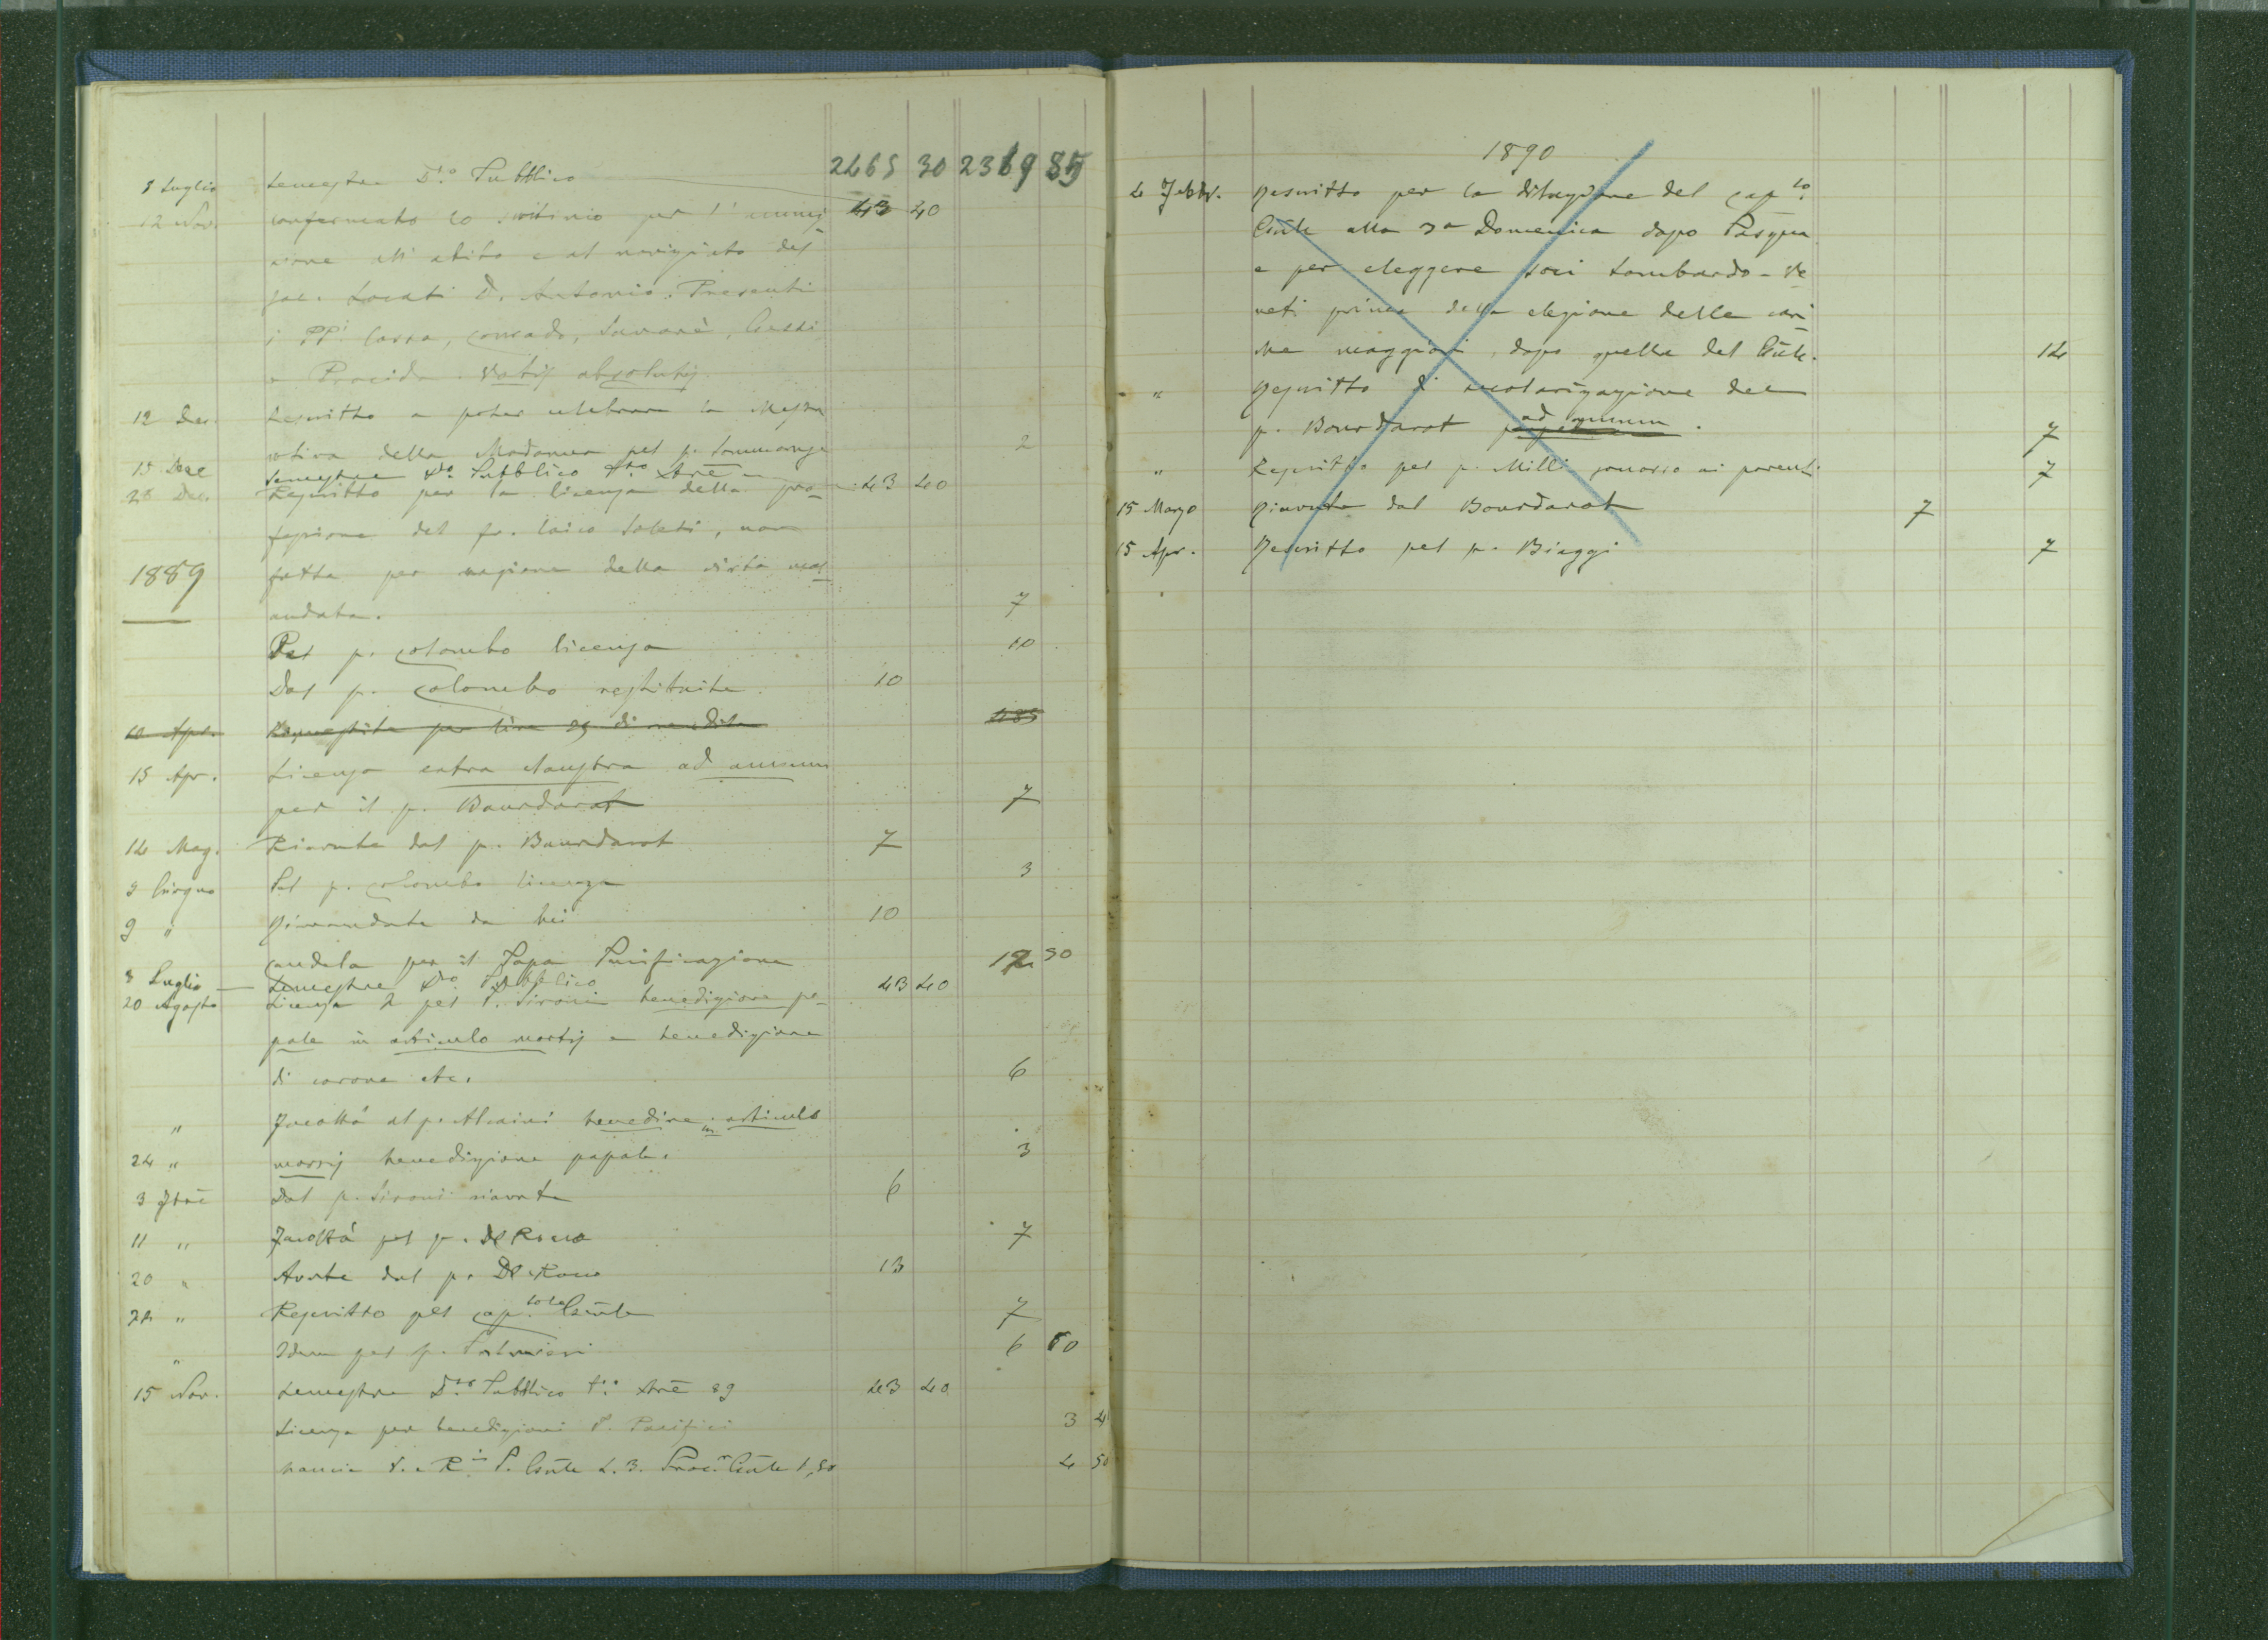 2465 30 2369 85
8 Luglio Semestre D.to Pubblico
12 Nov. confermato lo scrutinio per l'ammis 43 40
sione all'abito e al noviziato del
sac. Locati D. Antonio. Presenti
i PP.i Cossa, Corrado, Savarè, Gessi
e Procida. Votis absolutis.
12 Dec. Rescritto a poter celebrare la Messa
votiva della Madonna pel p. 2
15 Dec Semestre D.to Pubblico
28 Dec. Rescritto per la licenza della pro- 43 40
fessione del fr. laico Soleti, non
1889 fatta per ragione della visita mal
andata. 7
Pel p. Colombo licenza 10
Dal p. Colombo restituite 10
10 Apr. per lire 29 di rendita
15 Apr. Licenza extra claustra ad annum
per il p. Bourdarot 7
14 Mag. Riavute dal p. Bourdarot 7
3 Giugno Pel p. Colombo licenza 3
9 " Rimandate da lui 10
Candela per il Papa Purificazione 12 50
8 Luglio — Semestre D.to Pubblico 43 40
20 Agosto Licenza 2 pel P. Sironi benedizione pa-
pale in articulo mortis e benedizione
di corone etc. 6
" Facoltà al p. Alcaini benedire in articulo
24 " mortis benedizione papale. 3
3 7bre Dal p. Sironi riavute 6
11 " Facoltà pel p. De Rocco 7
20 " Avute dal p. De Rocco 13
22 " Rescritto pel Cap.tolo Gñle 7
" Idem pel p. Palmieri 6 50
15 Nov. Semestre D.to Pubblico 89 43 40
Licenza per benedizioni P. Pacifici 3 4
mancia P. Gñle L. 3. Proc.r Gñle 1,50 4 50
1890
4 Febbr. Rescritto per la dilazione del Cap.lo
Gñle alla 3a Domenica dopo Pasqua
e per eleggere soci Lombardo-Ve
neti prima della elezione delle cari
che maggiori, dopo quella del Gñle. 14
" Rescritto di secolarizazione del
p. Bourdarot ad annum. 7
" Rescritto pel p. Milli soccorso ai parenti 7
15 Marzo Riavute dal Bourdarot 7
15 Apr. Rescritto pel p. Biaggi 7